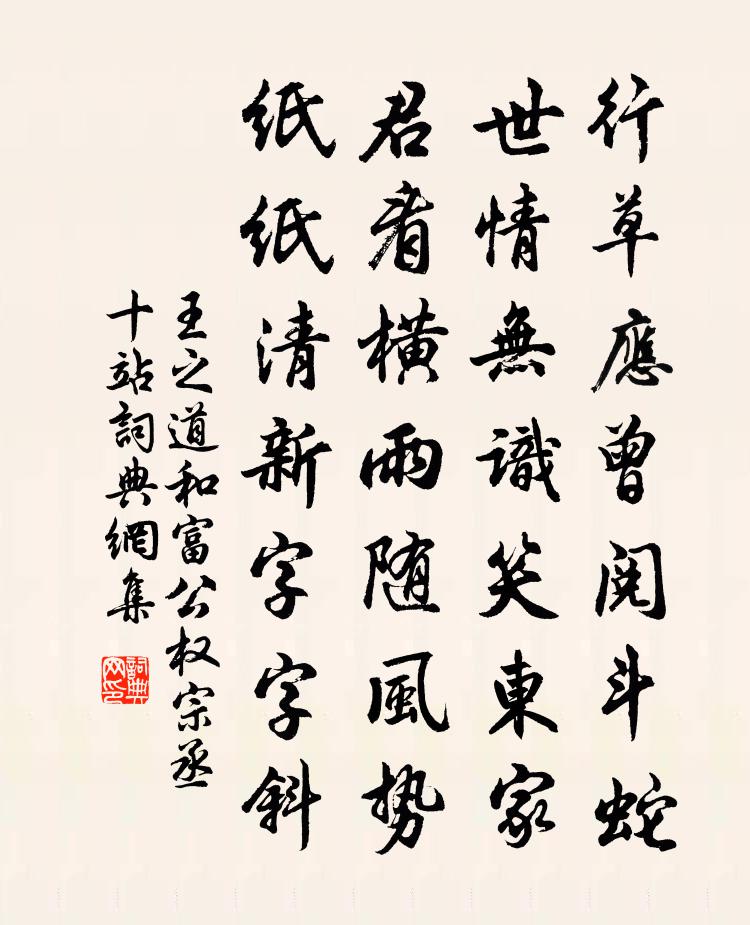 行草應曾閱斗蛇
世情無識笑東家
君看橫雨随風势
紙紙清新字字斜
王之道和富公权宗丞
十站詞典網集
詞典网印